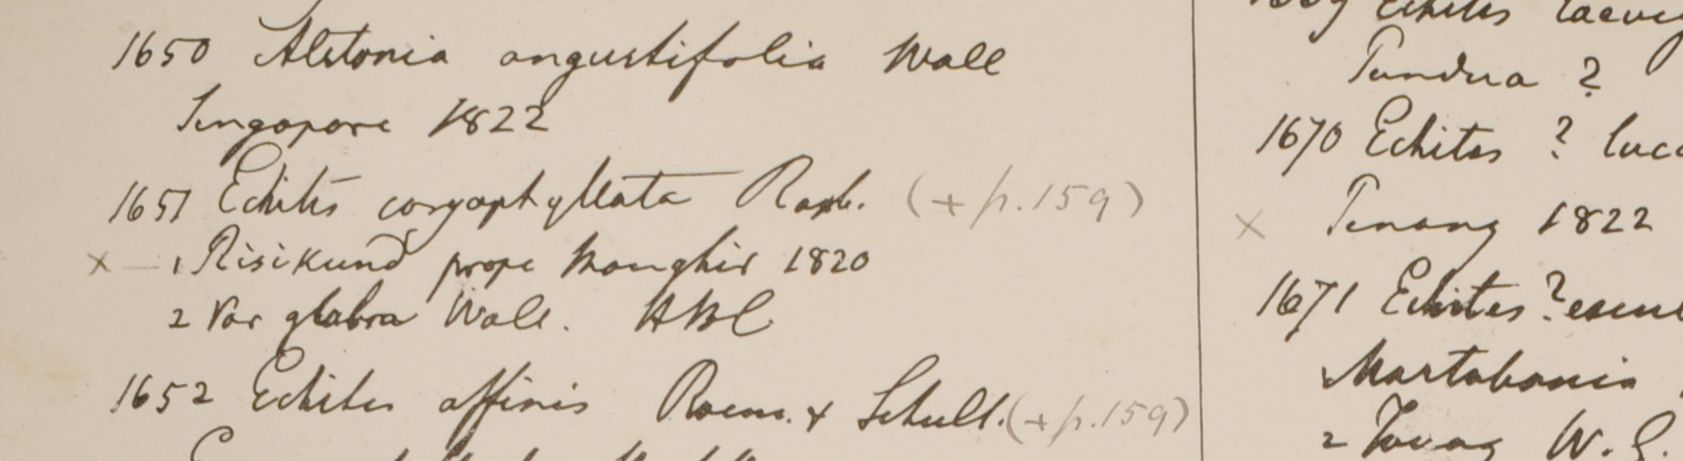 1650 Alstonia angustifolia Wall
Singapore 1822
1651 Echites caryophyllata Roxb. (+ p. 159)
x — 1 Risikund prope Monghir 1820
2 Var glabra Wall. HBC
1652 Echites affinis Roem. & Schult. (+ p. 159)
Echites laevig
Pundua ?
1670 Echites ? luc
x Penang 1822
1671 Echites ? escul
Martabania
2 Tavoy W. G.